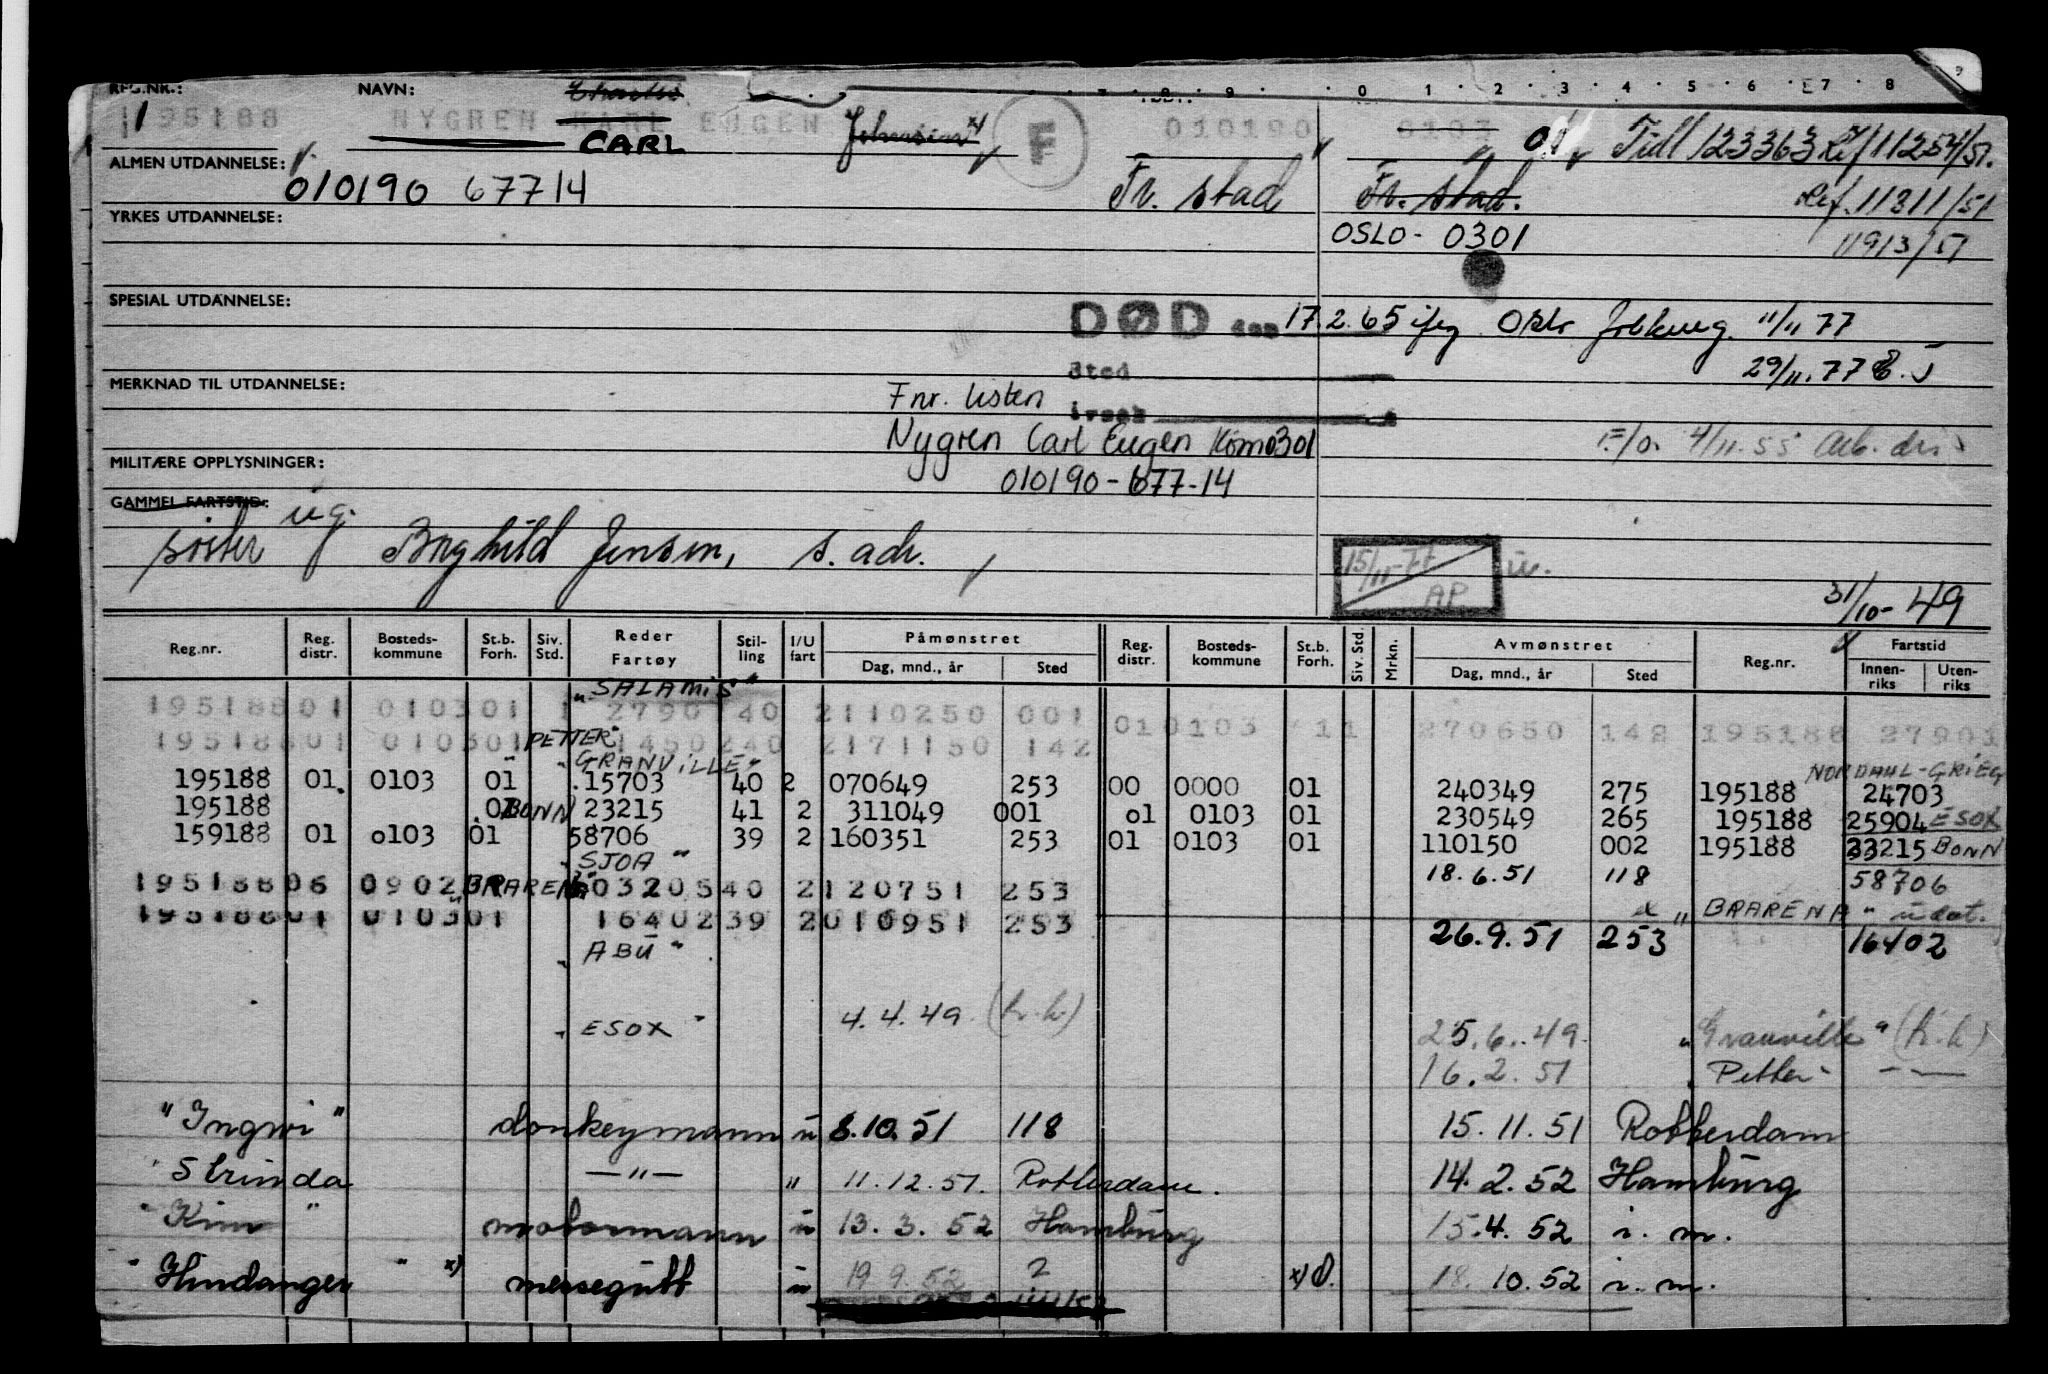 REG.NR.: NAVN: 0 · 1 · 2 · 3 · 4 · 5 · 6 · 7 · 8
195188 NYGREN KARL EUGEN F 010190 0103 Tidl 123363 Ref 11254/51.
CARL
ALMEN UTDANNELSE: 010190 67714 Fr. stad Fr. stad. Ref. 11311/51
YRKES UTDANNELSE: OSLO - 0301 11913/51
SPESIAL UTDANNELSE: DØD den 17.2.65 iflg. Oslo folkereg. 11/11 77
Sted 29/11.77
MERKNAD TIL UTDANNELSE: Fnr. listen årsak
Nygren Carl Eugen Kom 0301 F/o. 4/11.55 Arb. dir
MILITÆRE OPPLYSNINGER: 010190-677-14
GAMMEL FARTSTID: ug.
søster Borghild Jensen, s. adr. 15/11-77 AP
31/10-49
Reg.nr. Reg. distr. Bosteds-kommune St.b. Forh. Siv. Std. Reder Fartøy Stil-ling I/U fart Påmønstret Dag, mnd., år Sted Reg. distr. Bosteds-kommune St.b. Forh. Siv. Std. Mrkn. Avmønstret Dag, mnd., år Sted Reg.nr. Fartstid Innen-riks Uten-riks
"SALAMIS"
19518801 010301 1 2790140 2110250 001 010103 11 270650 148 195188 27901
19518801 010301 PETTER 1450240 2171150 142
"GRANVILLE" NORDAHL-GRIEG
195188 01 0103 01 15703 40 2 070649 253 00 0000 01 240349 275 195188 24703
195188 01 BONN 23215 41 2 311049 001 01 0103 01 230549 265 195188 25904 ESOX
159188 01 0103 01 58706 39 2 160351 253 01 0103 01 110150 002 195188 23215 BONN
"SJOA" 18.6.51 118 58706
19518806 0902 BRARENA 0320540 2120751 253 "BRARENA" udat.
19518801 010301 1640239 2010951 253 26.9.51 253 16402
"ABU"
"ESOX" 4.4.49 (h.h) 25.6.49. "Granville" (h.h)
16.2.51 Petter - —
"Ingwi" donkeymann u 8.10.51 118 15.11.51 Rotterdam
"Strinda —"— " 11.12.51. Rotterdam. 14.2.52 Hamburg
"Kim" motormann u 13.3.52 Hamburg 15.4.52 i.m.
"Hindanger" x) messegutt u 19.9.52 2 x) 18.10.52 i.m.